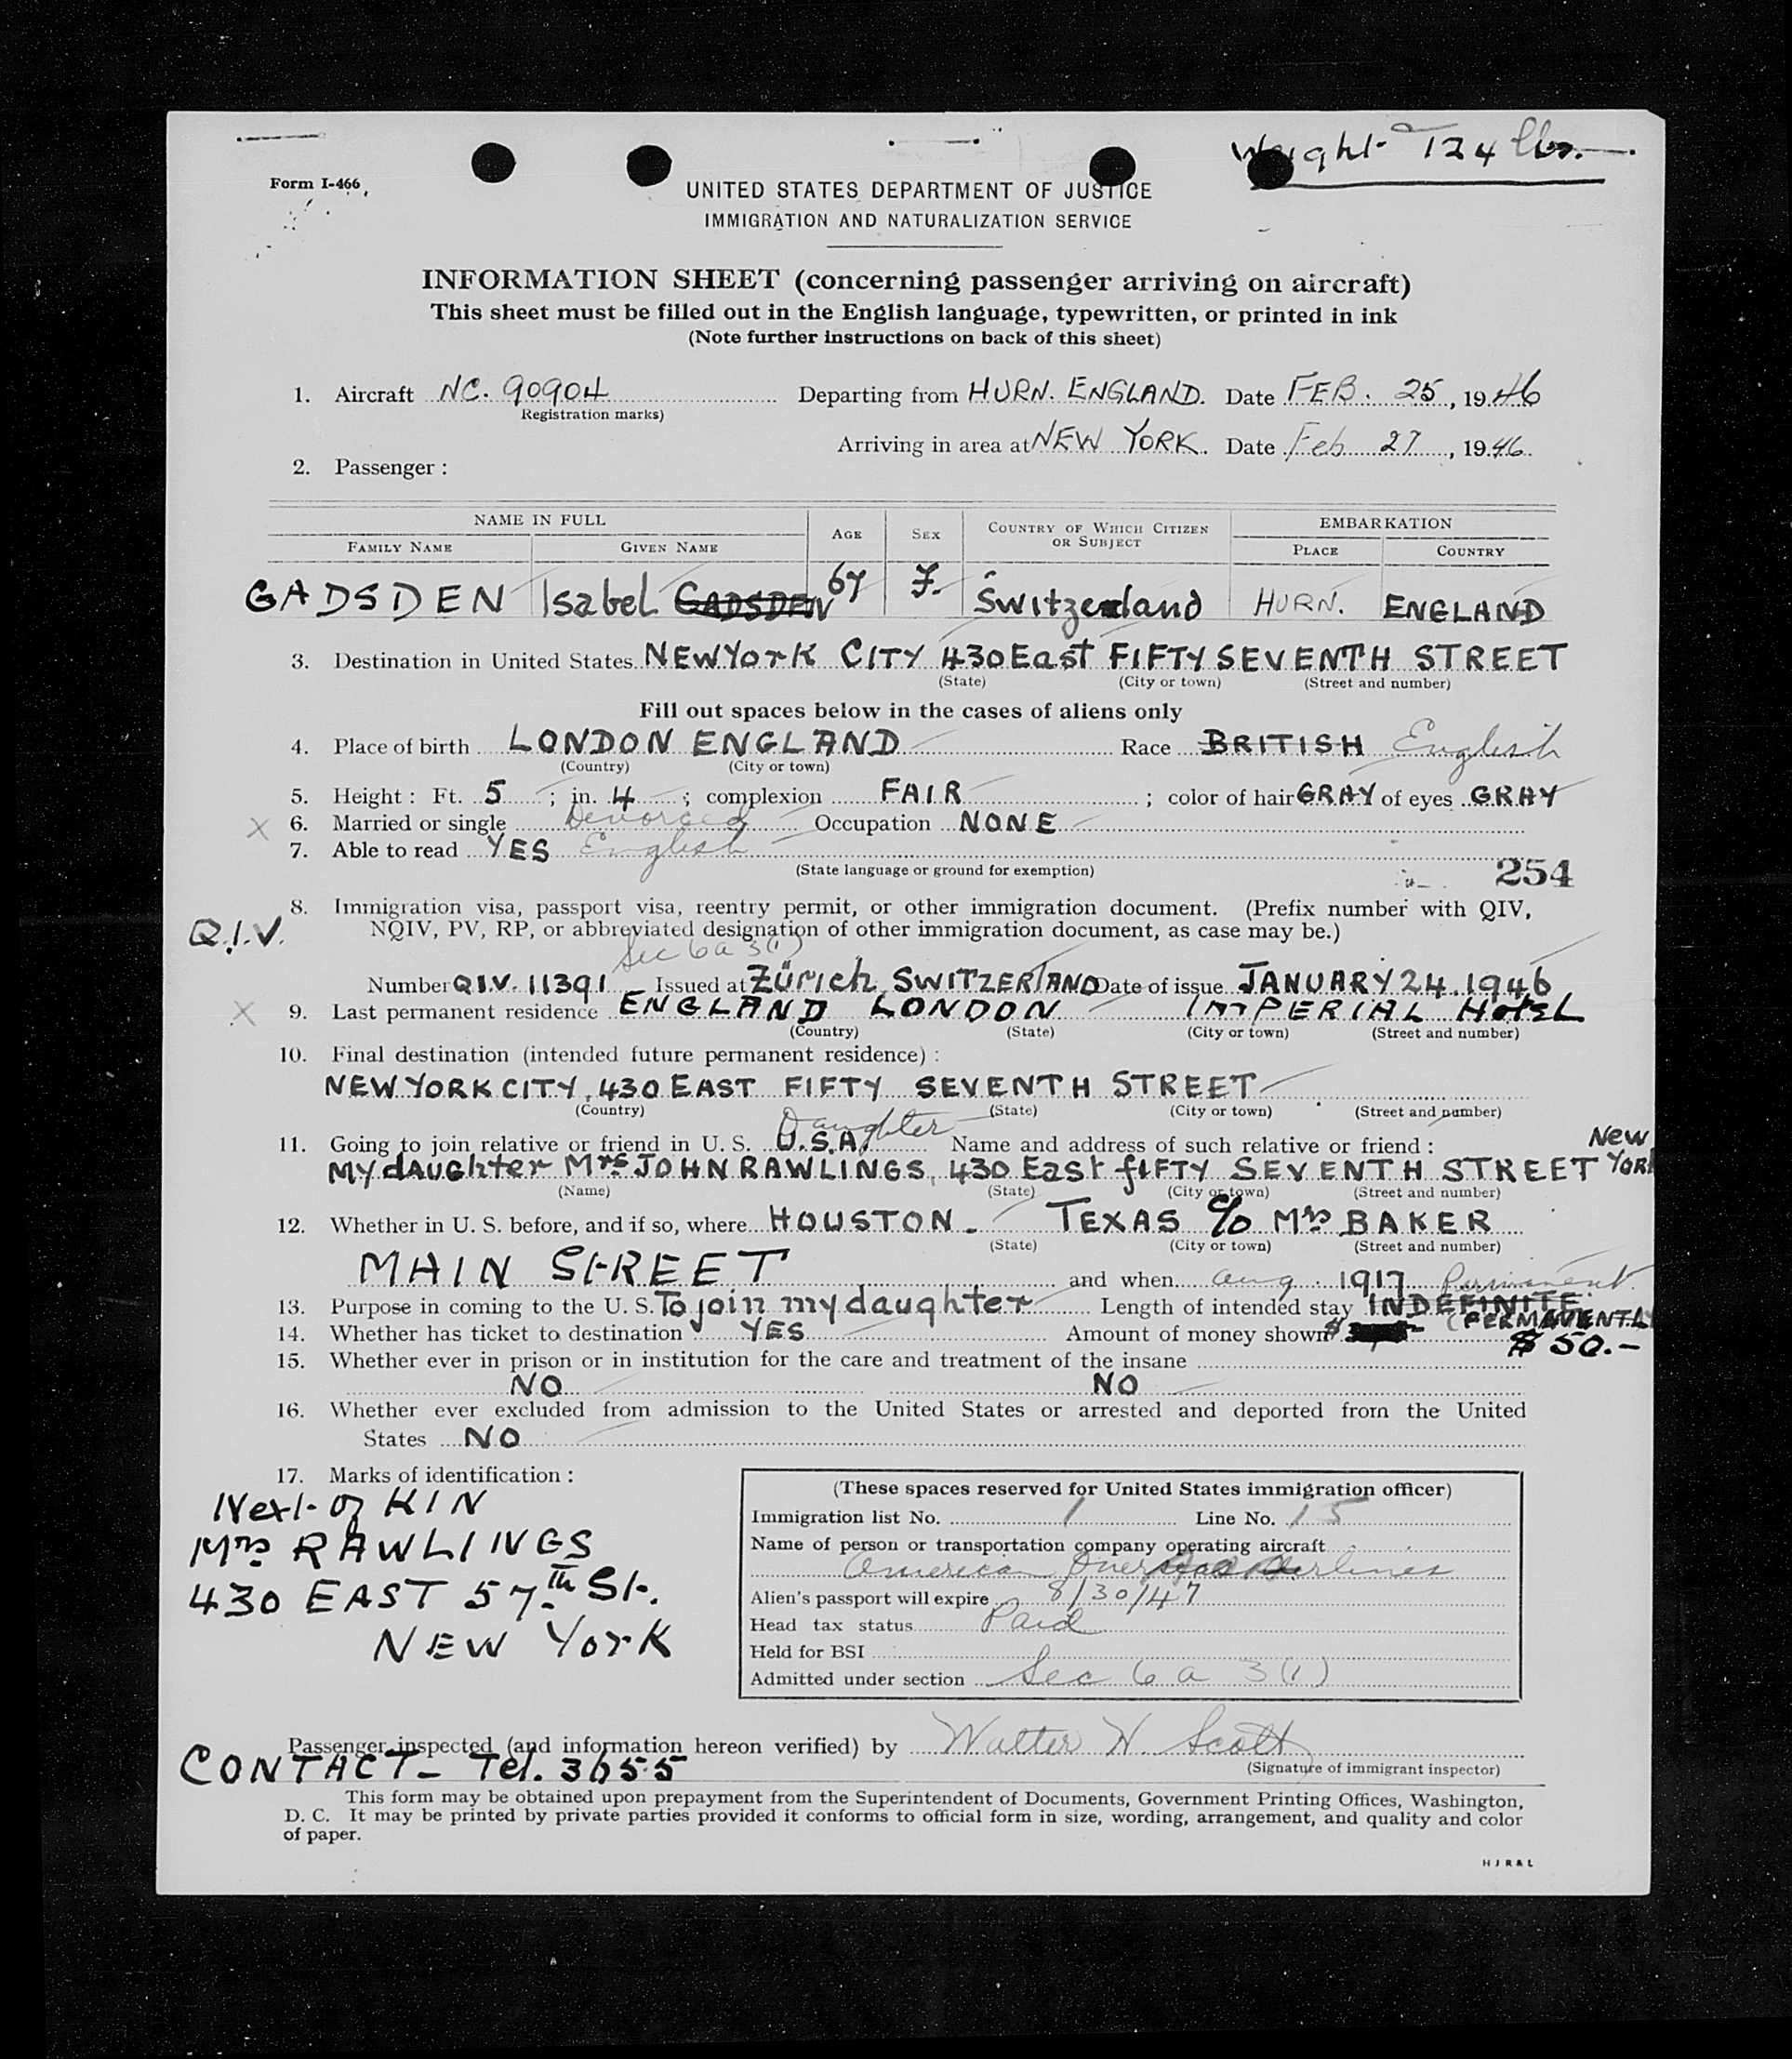 Weight - 124 lbs.
Form I-466
UNITED STATES DEPARTMENT OF JUSTICE
IMMIGRATION AND NATURALIZATION SERVICE
INFORMATION SHEET (concerning passenger arriving on aircraft)
This sheet must be filled out in the English language, typewritten, or printed in ink
(Note further instructions on back of this sheet)
1. Aircraft NC. 90904 Departing from HURN. ENGLAND. Date FEB. 25, 1946
Registration marks)
Arriving in area at NEW YORK. Date Feb 27, 1946.
2. Passenger:
NAME IN FULL AGE SEX COUNTRY OF WHICH CITIZEN OR SUBJECT EMBARKATION
FAMILY NAME GIVEN NAME PLACE COUNTRY
GADSDEN Isabel GADSDEN 67 F. Switzerland HURN. ENGLAND
3. Destination in United States NEW YORK CITY 430 East FIFTY SEVENTH STREET
(State) (City or town) (Street and number)
Fill out spaces below in the cases of aliens only
4. Place of birth LONDON ENGLAND Race BRITISH English
(Country) (City or town)
5. Height: Ft. 5; in. 4; complexion FAIR; color of hair GRAY of eyes GRAY
X 6. Married or single Devorced Occupation NONE
7. Able to read YES English
(State language or ground for exemption)
254
8. Immigration visa, passport visa, reentry permit, or other immigration document. (Prefix number with QIV,
Q.I.V. NQIV, PV, RP, or abbreviated designation of other immigration document, as case may be.)
Sec 6 a 3(1)
Number Q I.V. 11391 Issued at Zürich SWITZERLAND Date of issue JANUARY 24. 1946
X 9. Last permanent residence ENGLAND LONDON IMPERIAL HOTEL
(Country) (State) (City or town) (Street and number)
10. Final destination (intended future permanent residence):
NEW YORK CITY, 430 EAST FIFTY SEVENTH STREET
(Country) (State) (City or town) (Street and number)
Daughter
11. Going to join relative or friend in U. S. U.S.A. Name and address of such relative or friend:
MY dAUGhter Mrs JOHN RAWLINGS, 430 East fIFTY SEVENTH STREET New York
(Name) (State) (City or town) (Street and number)
12. Whether in U. S. before, and if so, where HOUSTON - TEXAS c/o Mrs BAKER
(State) (City or town) (Street and number)
MAIN STREET and when Aug. 1917 Permanent
13. Purpose in coming to the U. S. To join my daughter Length of intended stay INDEFINITE
(PERMANENTLY
14. Whether has ticket to destination YES Amount of money shown $ $ 50.-
15. Whether ever in prison or in institution for the care and treatment of the insane
NO NO
16. Whether ever excluded from admission to the United States or arrested and deported from the United
States NO
17. Marks of identification:
Next of KIN
Mrs RAWLINGS
430 EAST 57th St.
NEW YorK
(These spaces reserved for United States immigration officer)
Immigration list No. 1 Line No. 15
Name of person or transportation company operating aircraft
American Overseas Airlines
Alien's passport will expire 8/30/47
Head tax status Paid
Held for BSI
Admitted under section Sec 6 a 3(1)
Passenger inspected (and information hereon verified) by Walter H. Scott
(Signature of immigrant inspector)
CONTACT - Tel. 3655
This form may be obtained upon prepayment from the Superintendent of Documents, Government Printing Offices, Washington,
D. C. It may be printed by private parties provided it conforms to official form in size, wording, arrangement, and quality and color
of paper.
H J R & L